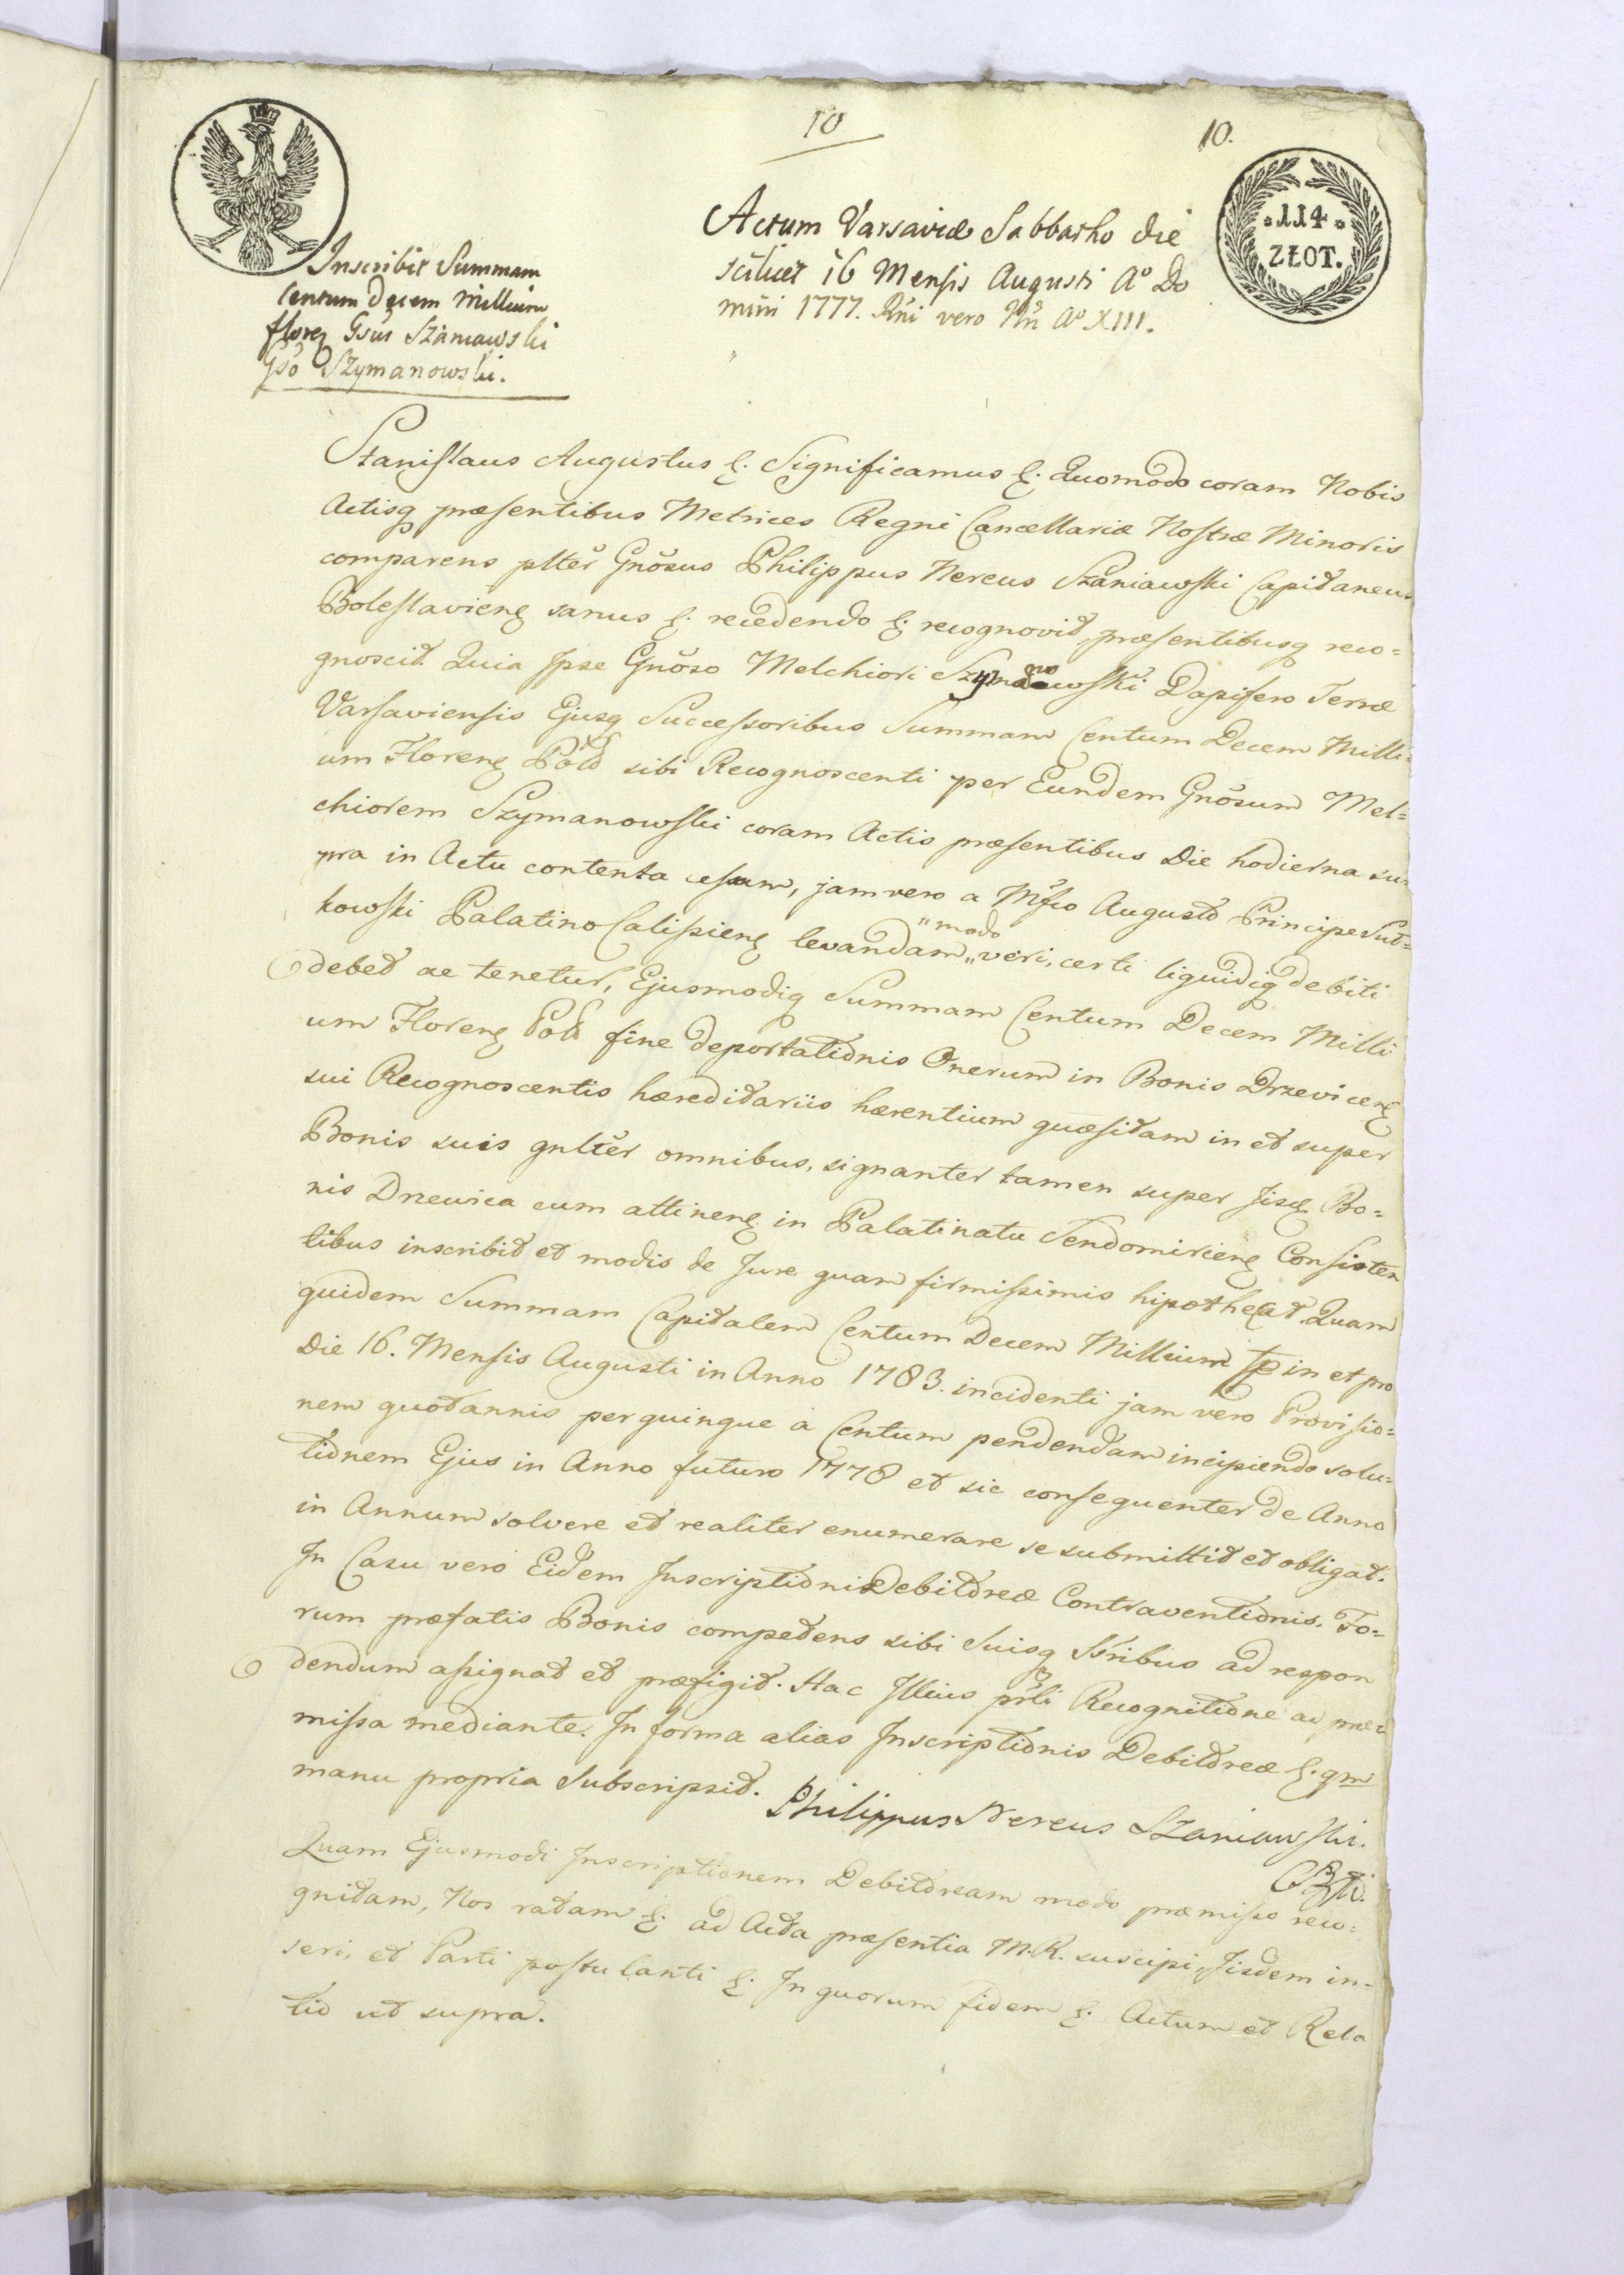 10
10.
114
ZŁOT.
Actum Varsaviæ Sabbatho die
scilicet 16 Mensis Augusti A° Do
mini 1777. Rni vero Nri A° XIII.
Inscribit Summam
Centum Decem Millium
floren Gsus Szaniawski
Gso Szymanowski.
Stanislaus Augustus &. Significamus &. Quomodo coram Nobis
Actisq præsentibus Metrices Regni Cancellariæ Nostræ Minoris
comparens pltẽr Gnõsus Philippus Nereus Szaniawski Capitaneus
Boleslavien sanus &. recedendo &. recognovit, præsentibusq reco=
gnoscit. Quia Ipse Gnõso Melchiori Szymanowski Dapifero Terræ
Varsaviensis Ejusq Successoribus Summam Centum Decem Milli=
um Floren Pol sibi Recognoscenti per Eundem Gnõsum Mel=
chiorem Szymanowski coram Actis præsentibus Die hodierna su=
pra in Actu contenta cesam, jam vero a Mfco Augusto Principe Sul=
kowski Palatino Calissien levandam „modo„ veri, certi liquidiq debiti
debet ac tenetur, Ejusmodiq Summam Centum Decem Milli
um Floren Pol fine deportationis Onerum in Bonis Drzevicen
sui Recognoscentis hæreditariis hærentium quæsitam in et super
Bonis suis gnltẽr omnibus, signanter tamen super Iisd Bo=
nis Drzewica cum attinen in Palatinatu Sendomirien Consisten
tibus inscribit et modis de Jure quam firmissimis hipothecat. Quam
quidem Summam Capitalem Centum Decem Millium in et pro
Die 16. Mensis Augusti in Anno 1783. incidenti jam vero Provisio=
nem quotannis per quinque à Centum pendendam incipiendo solu=
tionem Ejus in Anno futuro 1778 et sic consequenter de Anno
in Annum solvere et realiter enumerare se submittit et obligat.
In Casu vero Eidem Inscriptioni Debitoreæ Contraventionis. Fo=
rum præfatis Bonis competens sibi Suisq Ssribus ad respon
dendum assignat et præfigit. Hac Illius prli Recognitione ad præ
missa mediante. In forma alias Inscriptionis Debitoreæ &. qm
manu propria Subscripsit. Philippus Nereus Szaniawski.
Quam Ejusmodi Inscriptionem Debitoream modo præmisso reco=
gnitam, Nos ratam &. ad Acta præsentia M.R. suscipi, Iisdem in=
seri, et Parti postulanti &. In quorum fidem &. Actum et Rela
tio ut supra.